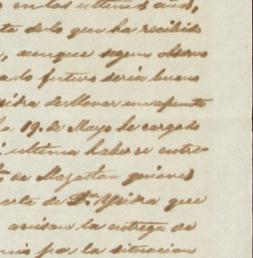 en los ultimos años,
ta de lo que ha recibido
, aunque segun obser
lo futuro seria bueno
de llevar un apunte
19. de Mayo he cargado
ultima haber se entre-
de Mazatlan quienes
de D.ª Ysidra que
avisan la entrega de
por la situacion